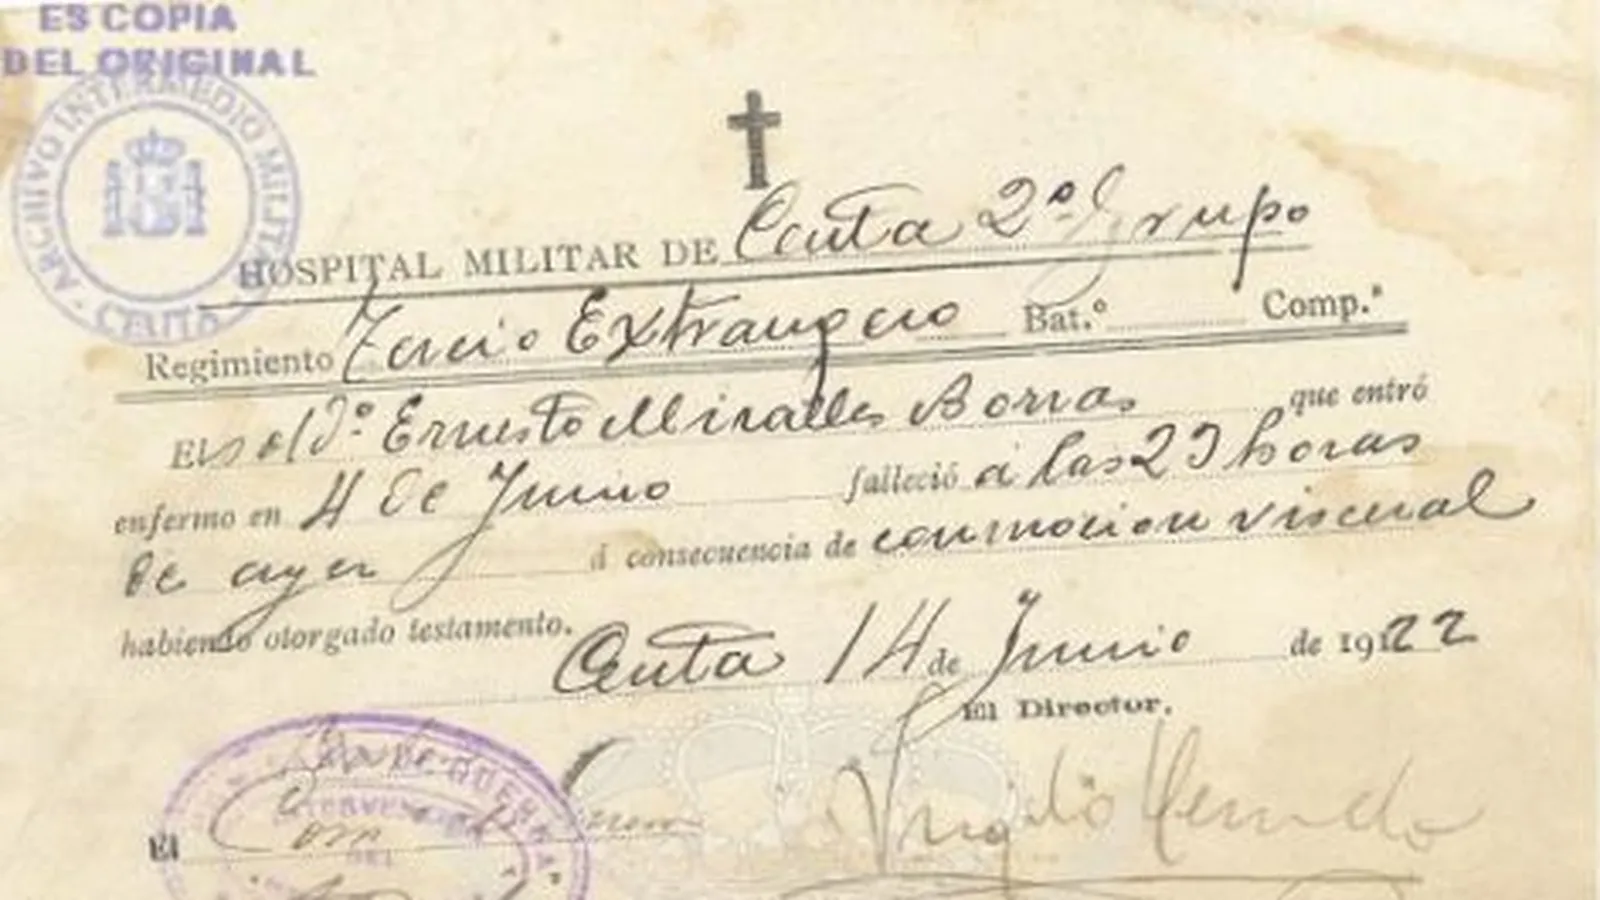 ES COPIA
DEL ORIGINAL
ARCHIVO INTERMEDIO MILITAR · CEUTA
HOSPITAL MILITAR DE Ceuta 2º Grupo
Regimiento Tercio Extrangero Bat.º Comp.ª
El soldº Ernesto Miralles Borras que entró
enfermo en 4 de Junio falleció á las 23 horas
de ayer á consecuencia de conmocion visceral
habiendo otorgado testamento.
Ceuta 14 de Junio de 1922
El Director.
El Com